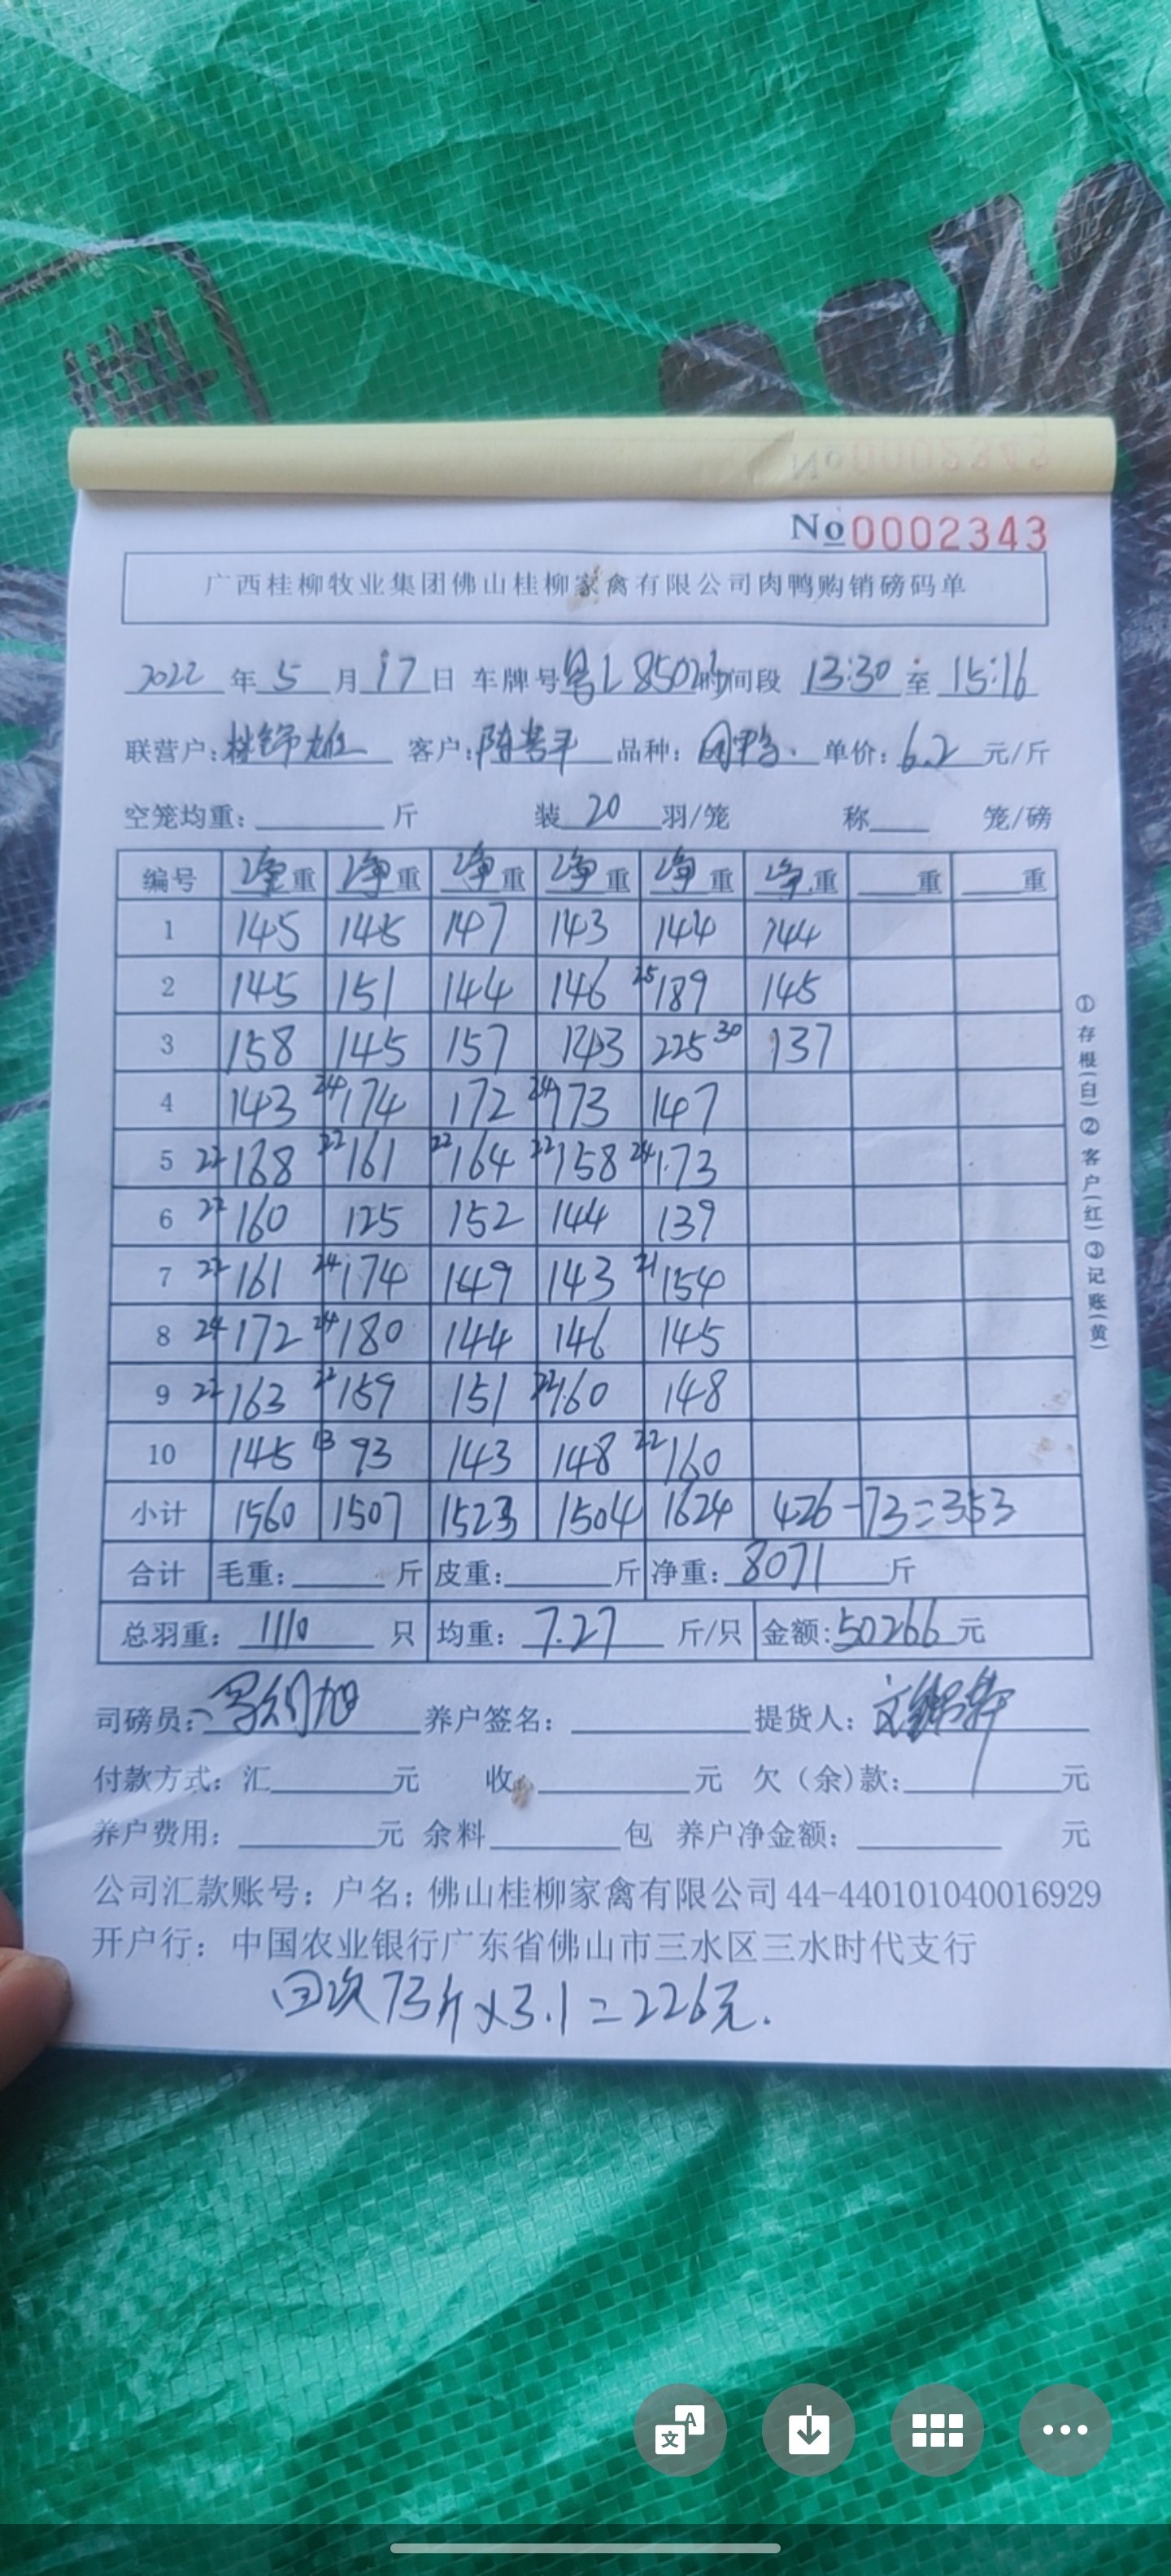 No 0002343
广西桂柳牧业集团佛山桂柳家禽有限公司肉鸭购销磅码单
2022 年 5 月 17 日 车牌号 粤L 8502 时间段 13:30 至 15:16
联营户: 客户: 陈 平 品种: 单价: 6.2 元/斤
空笼均重: 斤 装 20 羽/笼 称 笼/磅
编号 净重 净重 净重 净重 净重 净重 重 重
1 145 145 147 143 144 144
2 145 151 144 146 25 189 145
3 158 145 157 143 225 30 137
4 143 24 174 172 24 173 147
5 22 168 22 161 22 164 22 158 24 173
6 22 160 125 152 144 139
7 22 161 24 174 149 143 21 154
8 24 172 24 180 144 146 145
9 22 163 22 159 151 22 160 148
10 145 13 93 143 148 22 160
小计 1560 1507 1523 1504 1624 426-73=353
合计 毛重: 斤 皮重: 斤 净重: 8071 斤
总羽重: 1110 只 均重: 7.27 斤/只 金额: 50266 元
司磅员: 旭 养户签名: 提货人: 文
付款方式: 汇 元 收 元 欠(余)款: 元
养户费用: 元 余料 包 养户净金额: 元
公司汇款账号: 户名: 佛山桂柳家禽有限公司 44-440101040016929
开户行: 中国农业银行广东省佛山市三水区三水时代支行
回次73斤×3.1=226元.
①存根(白)②客户(红)③记账(黄)